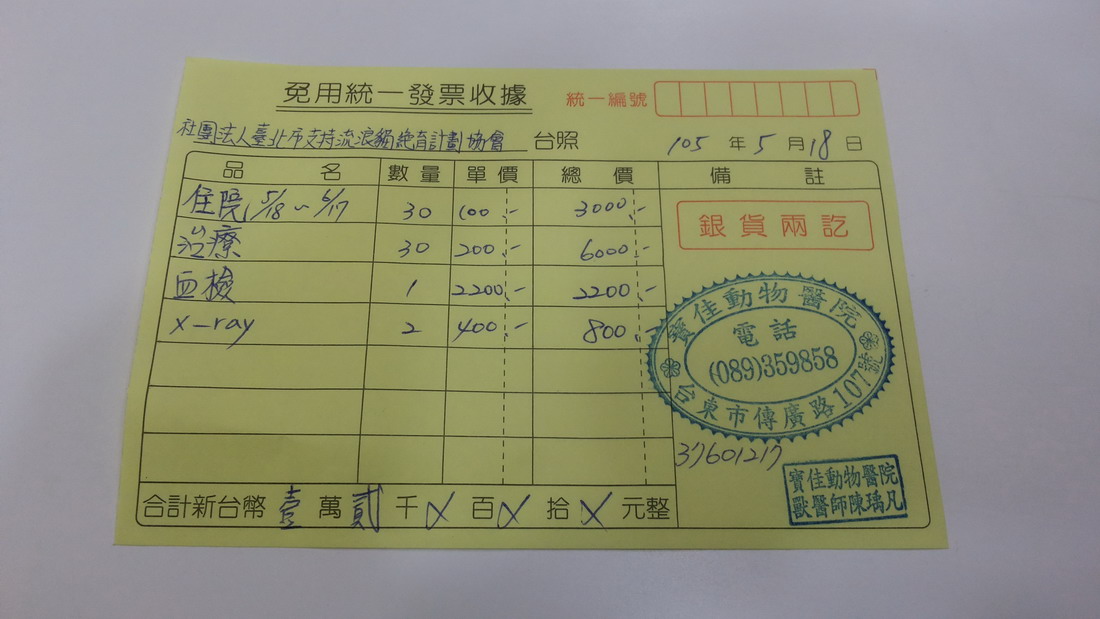 免用統一發票收據
統一編號
社團法人臺北市支持流浪貓絕育計劃協會 台照
105 年 5 月 18 日
品 名 數量 單價 總價 備註
住院 5/18~6/17 30 100.- 3000.-
治療 30 200.- 6000.-
血檢 1 2200.- 2200.-
x-ray 2 400.- 800.-
銀貨兩訖
寶佳動物醫院
電話
(089)359858
台東市傳廣路107號
37601217
寶佳動物醫院
獸醫師陳瑀凡
合計新台幣 壹 萬 貳 千 X 百 X 拾 X 元整